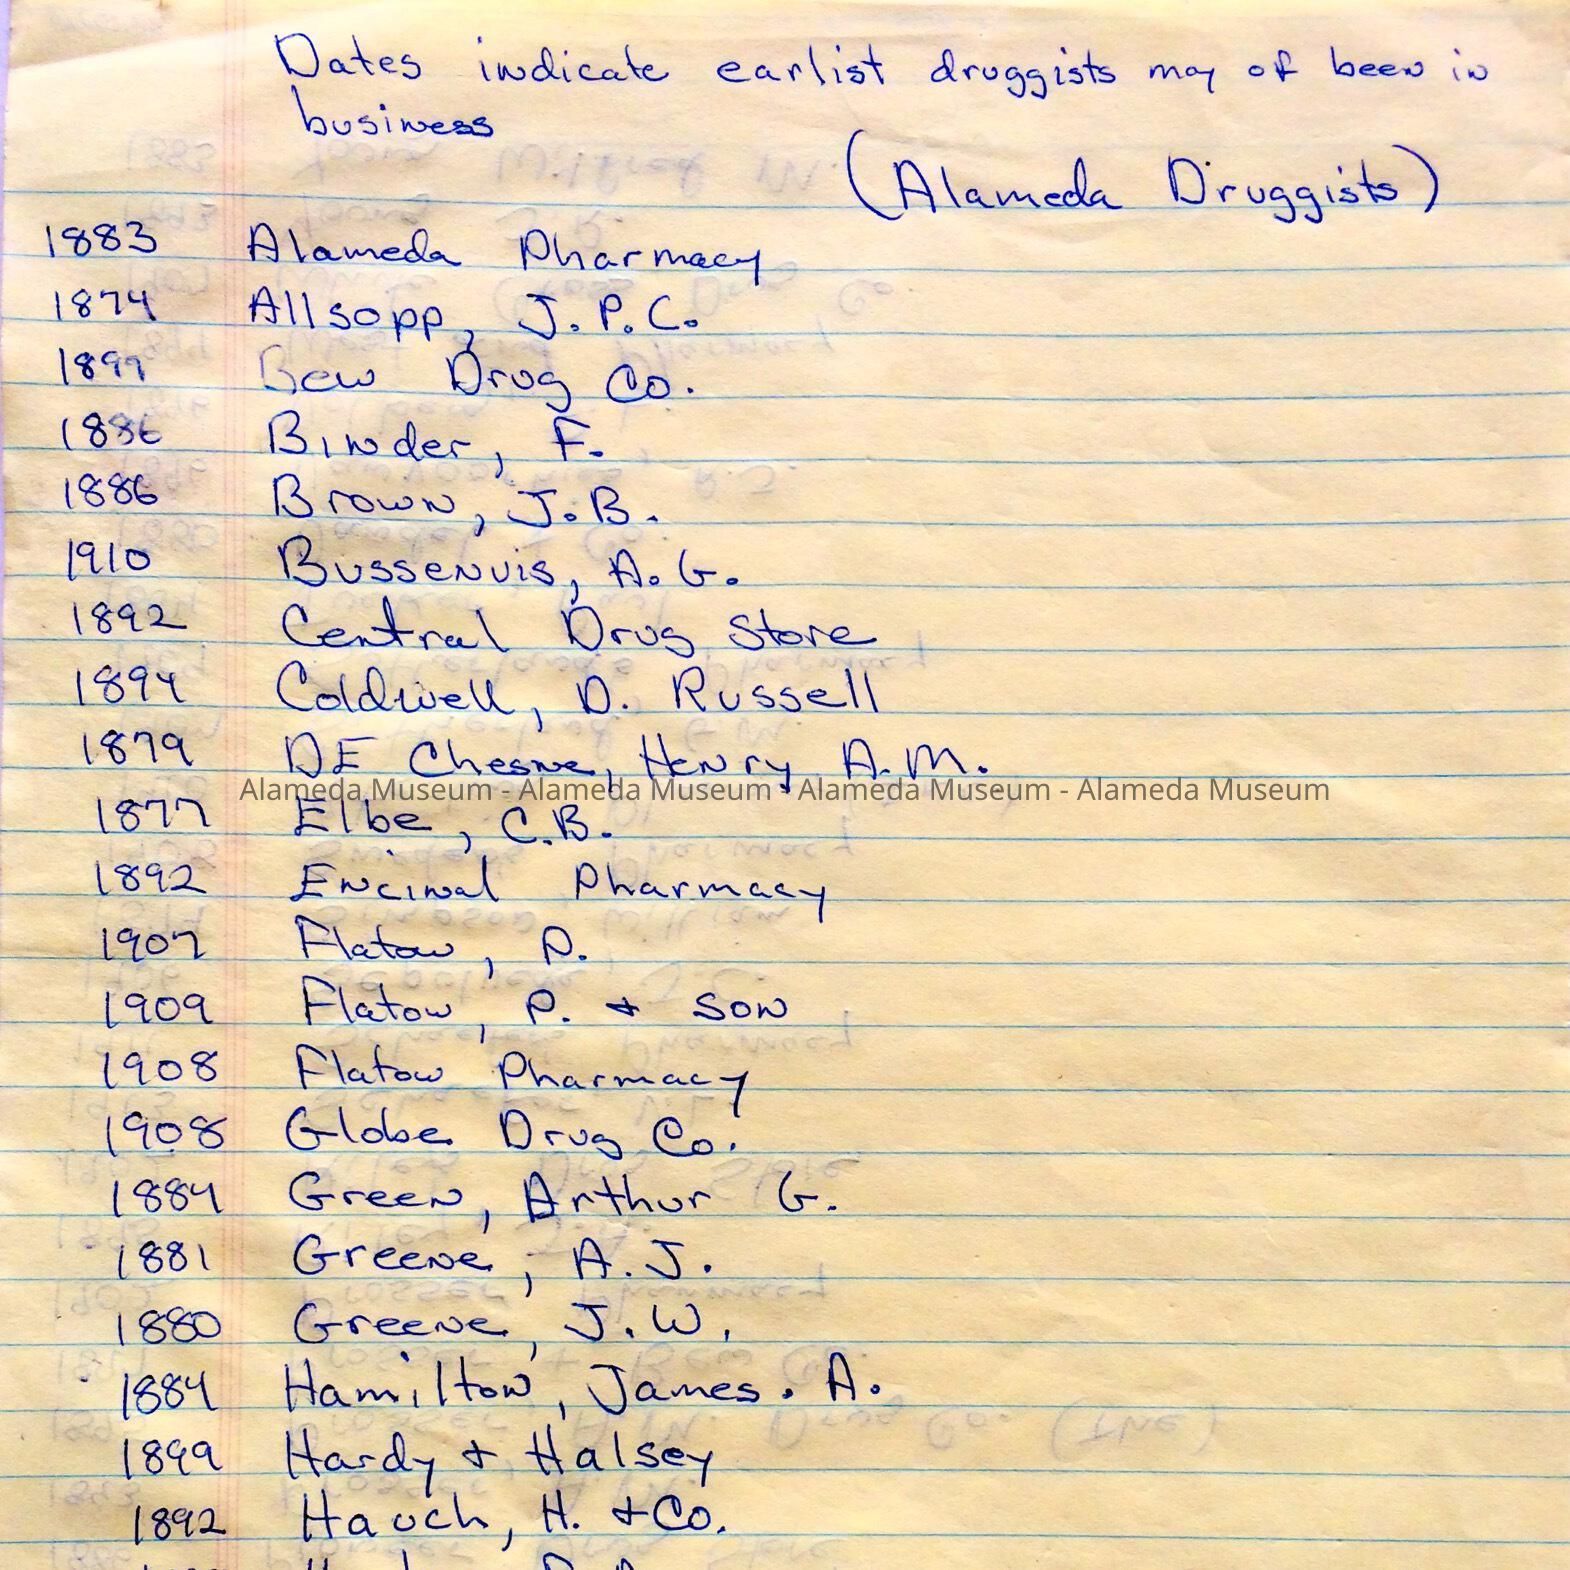 Dates indicate earlist druggists may of been in
business
(Alameda Druggists)
1883 Alameda Pharmacy
1874 Allsopp, J.P.C.
1897 Bew Drug Co.
1886 Binder, F.
1886 Brown, J.B.
1910 Bussenuis, A.G.
1892 Central Drug Store
1894 Coldwell, D. Russell
1879 DE Chesne, Henry A.M.
Alameda Museum - Alameda Museum - Alameda Museum - Alameda Museum
1877 Elbe, C.B.
1892 Encinal Pharmacy
1907 Flatow, P.
1909 Flatow, P. + Son
1908 Flatow Pharmacy
1908 Globe Drug Co.
1884 Green, Arthur G.
1881 Greene, A.J.
1880 Greene, J.W.
1884 Hamilton, James. A.
1899 Hardy + Halsey
1892 Hauch, H. + Co.